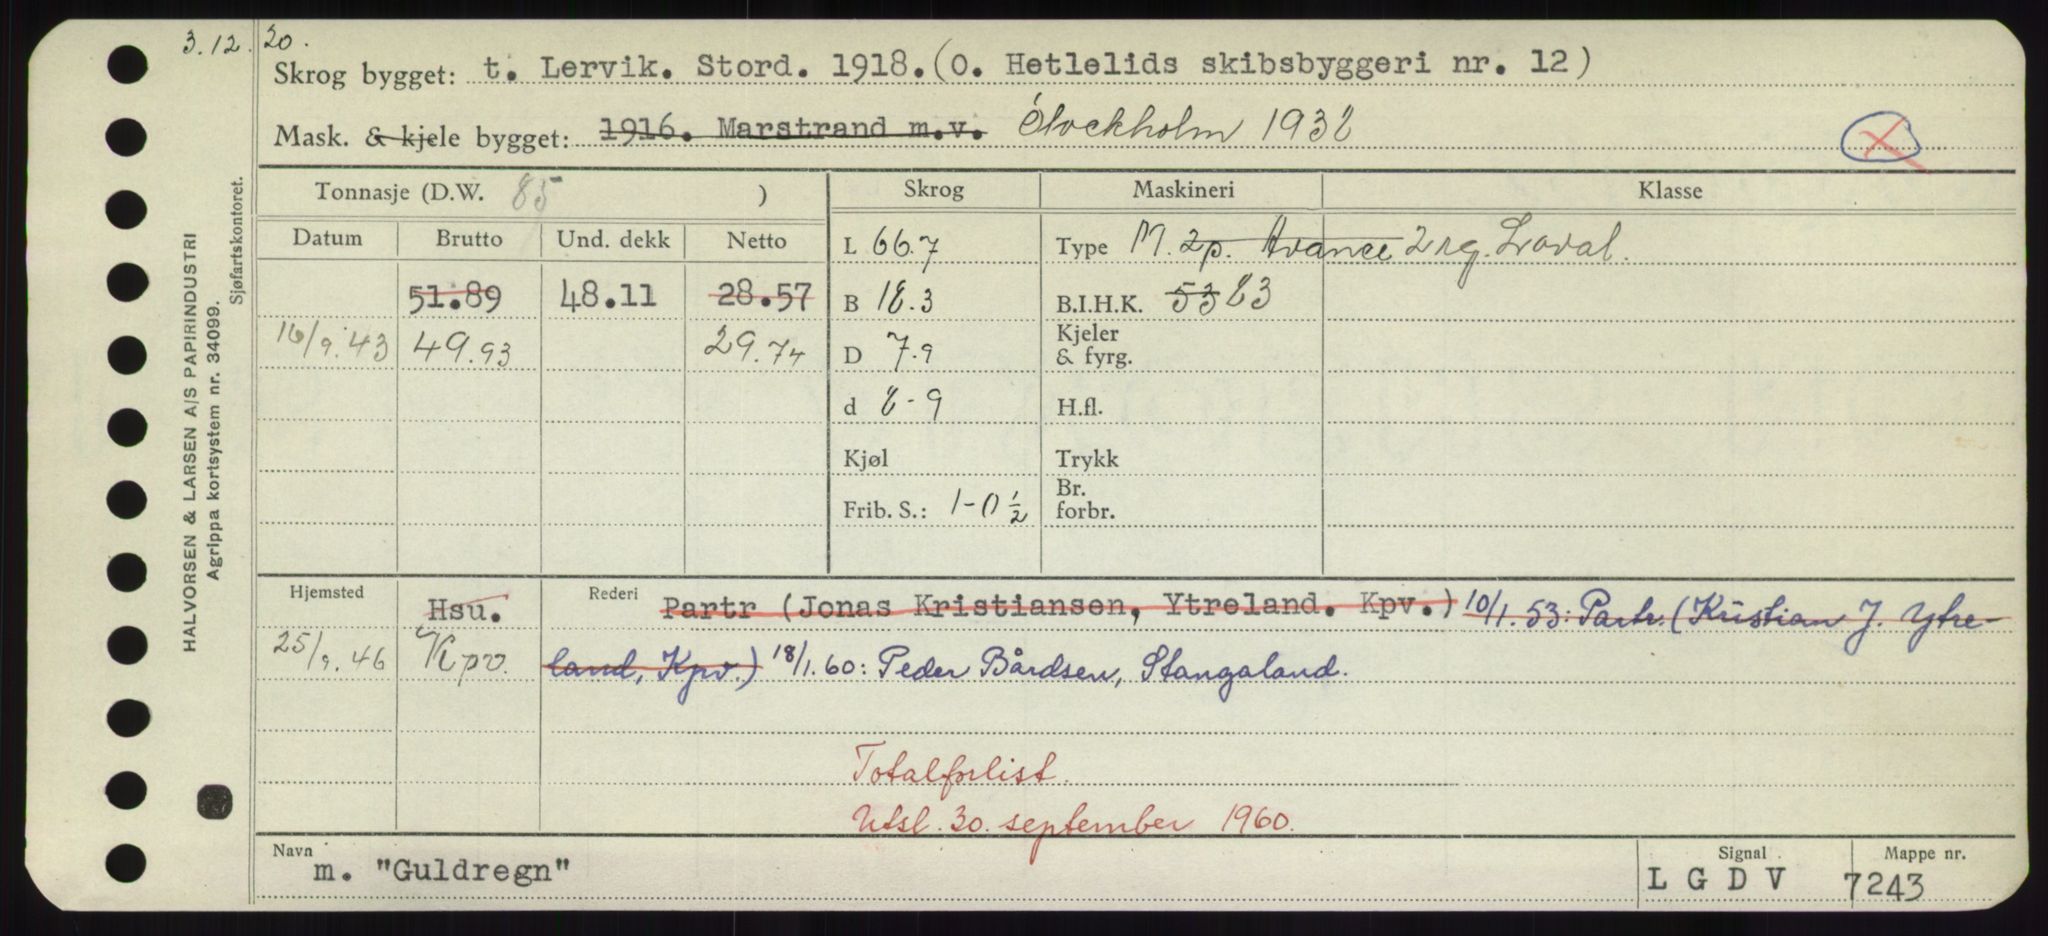 3.12.20.
Skrog bygget: t. Lervik. Stord. 1918. (O. Hetlelids skibsbyggeri nr. 12)
Mask. & kjele bygget: 1916. Marstrand m.v. Stockholm 1938
Tonnasje (D.W. 85 ) Skrog Maskineri Klasse
Datum Brutto Und. dekk Netto L 66.7 Type M. 2p. Avance 2 sg. Laval.
51.89 48.11 28.57 B 18.3 B.I.H.K. 53 83
16/9.43 49.93 29.74 D 7.9 Kjeler & fyrg.
d 8-9 H.fl.
Kjøl Trykk
Frib. S.: 1-0 1/2 Br. forbr.
Hjemsted Hsu. Rederi Partr (Jonas Kristiansen, Ytreland. Kpv.) 10/1.53: Partr. (Kristian J. Ytre-
25/9.46 Kpv. land, Kpv.) 18/1.60: Peder Bårdsen, Stangaland.
Totalforlist.
Utsl. 30. september 1960.
Navn m. "Guldregn" Signal L G D V Mappe nr. 7243
HALVORSEN & LARSEN A/S PAPIRINDUSTRI
Agrippa kortsystem nr. 34099.
Sjøfartskontoret.